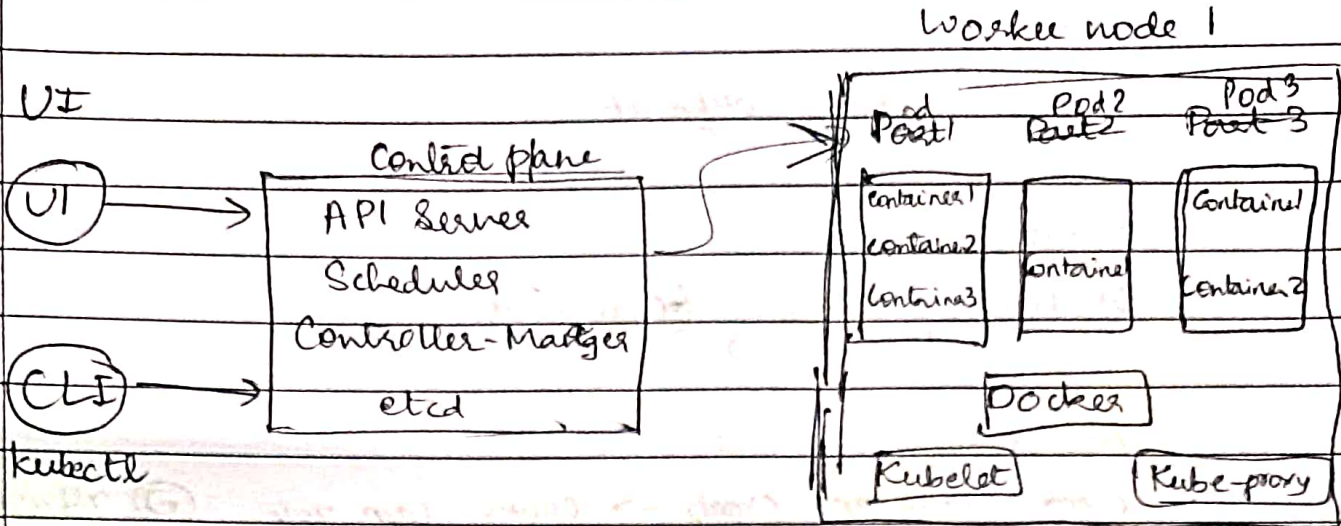 Worker node 1
UI
UI
CLI
kubectl
Control plane
API Server
Scheduler
Controller-Manager
etcd
Pod 1
Container1
Container2
Container3
Pod2
Container
Pod 3
Container1
Container2
Docker
Kubelet
Kube-proxy